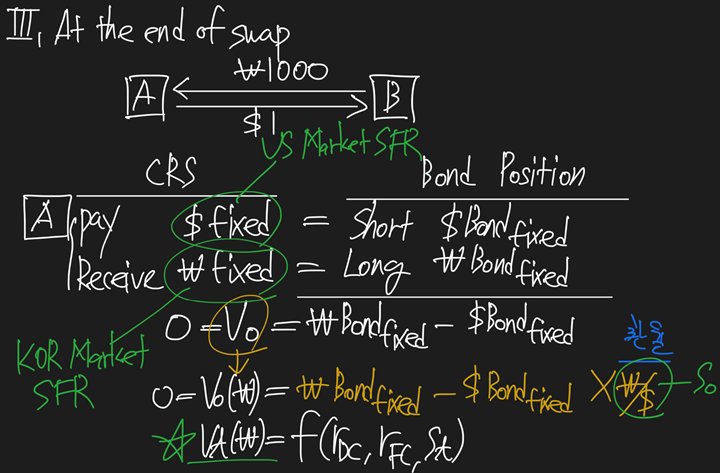 III, At the end of swap
₩1000
A B
$1
US Market SFR
CRS Bond Position
A pay $ fixed = Short $Bond fixed
Receive ₩ fixed = Long ₩ Bond fixed
0 = V0 = ₩Bond fixed - $Bond fixed
환율
KOR Market
SFR
0 = V0(₩) = ₩ Bond fixed - $ Bond fixed X (₩/$) - S0
☆ Vt(₩) = f(rDC, rFC, St)